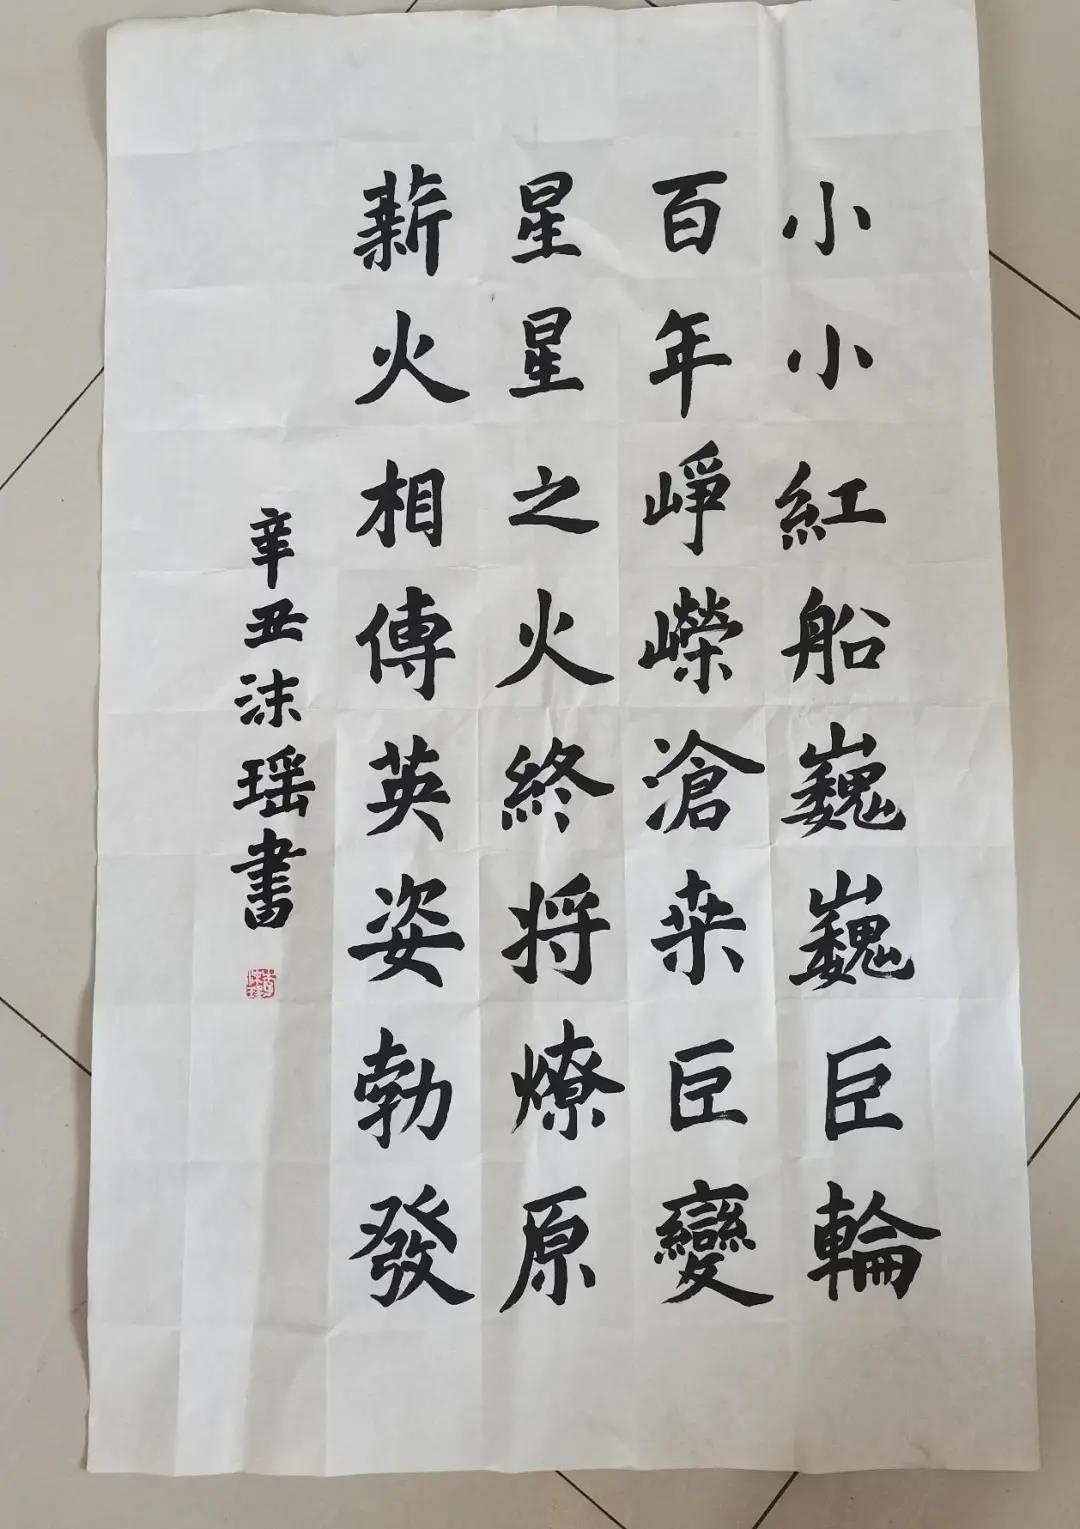 小小紅船巍巍巨輪
百年崢嶸滄桒巨變
星星之火終将燎原
薪火相傳英姿勃發
辛丑沫瑶書